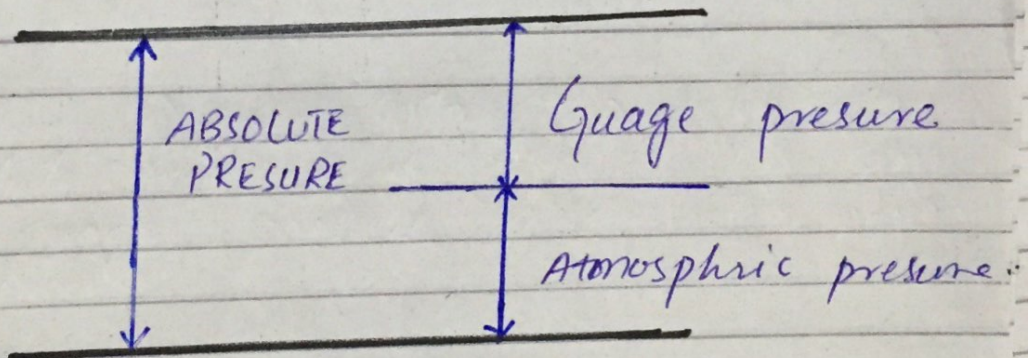 ABSOLUTE
PRESURE
Guage presure
Atomosphric presure.